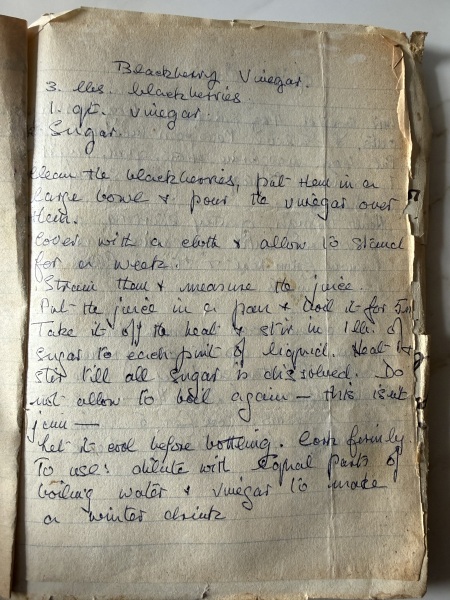 Blackberry Vinegar.
3. lbs. blackberries.
1. qt. vinegar.
Sugar
Clean the blackberries, put them in a
large bowl & pour the vinegar over
them.
Cover with a cloth & allow to stand
for a week.
Strain them & measure the juice.
Put the juice in a pan & boil it for 5
Take it off the heat & stir in 1 lb. of
sugar to each pint of liquid. Heat &
stir till all sugar is dissolved. Do
not allow to boil again — this isnt
jam —
Let it cool before bottling. Cork firmly
To use: dilute with equal parts of
boiling water & vinegar to make
a winter drink